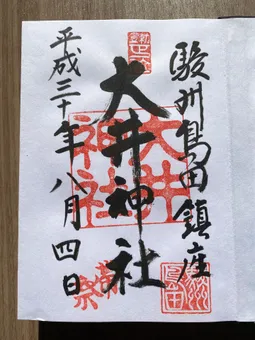 駿州島田鎮座
大井神社
平成三十年八月四日
大井
神社
帯祭